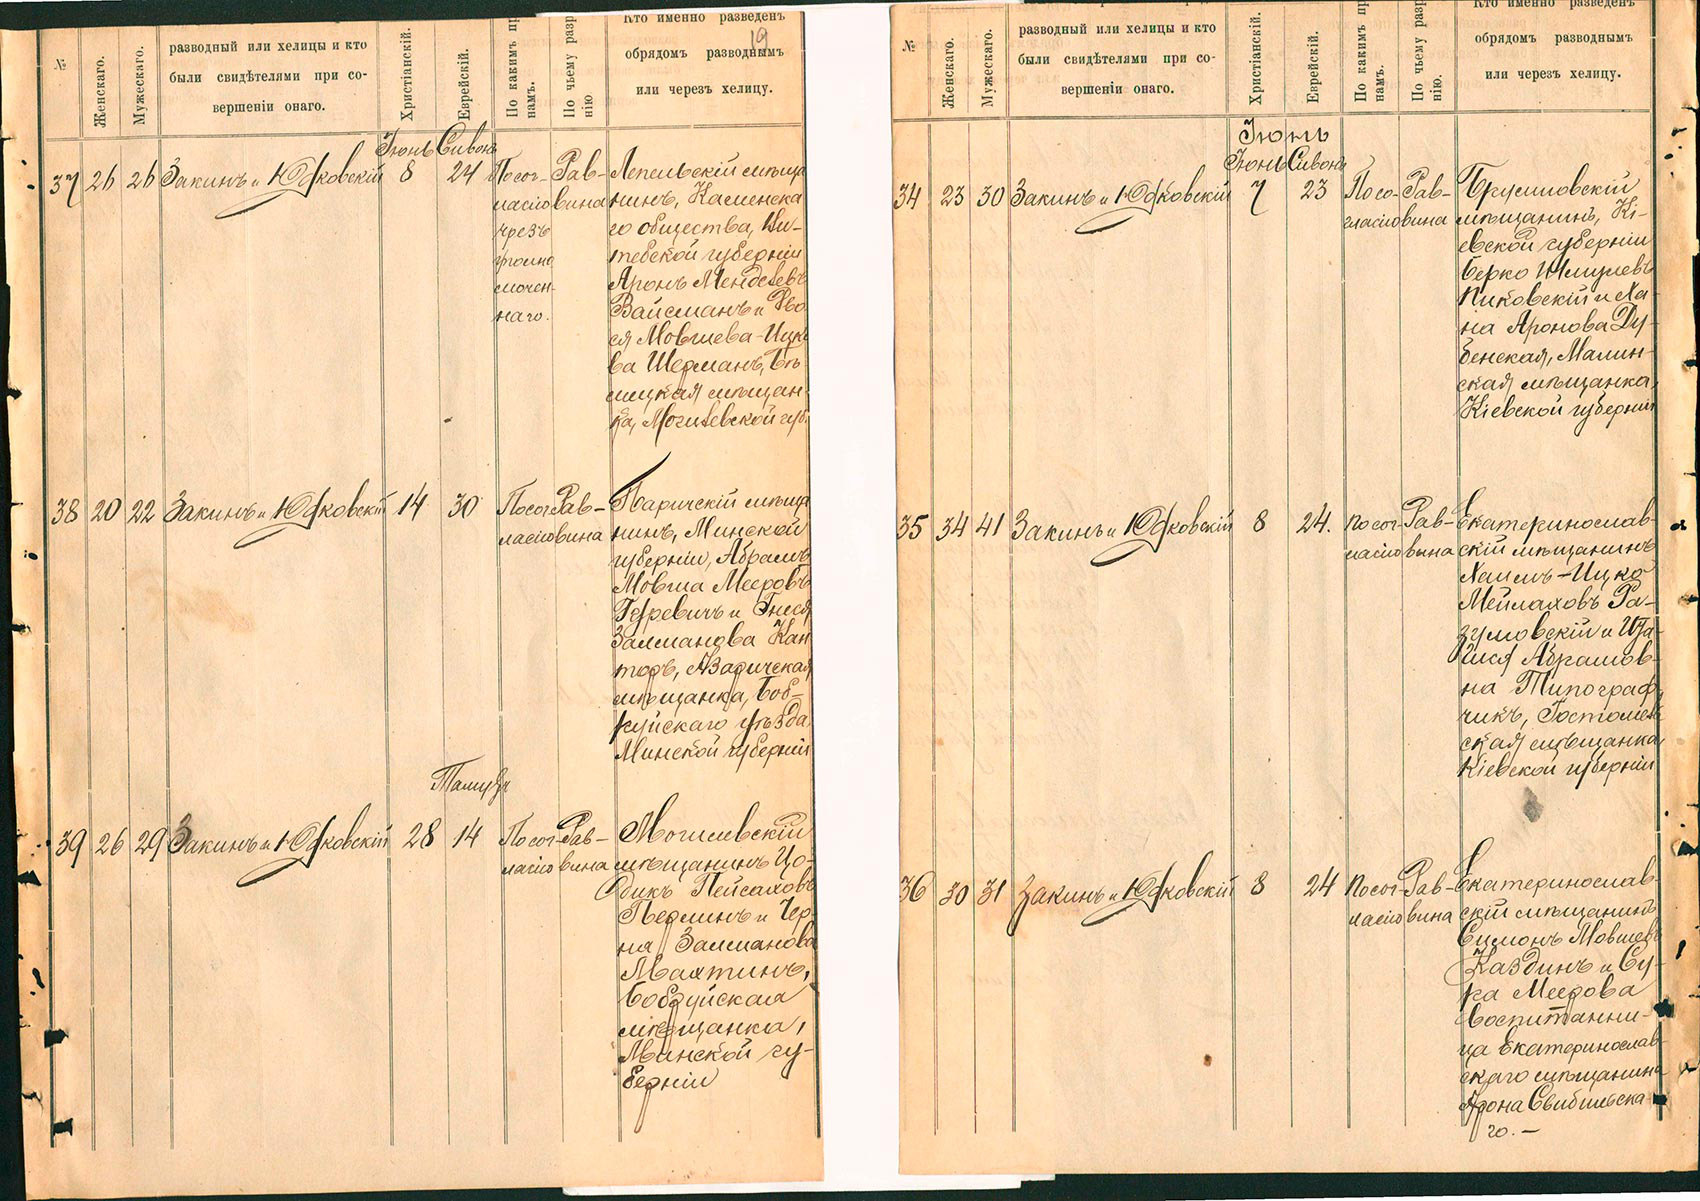 19
№
Женскаго.
Мужескаго.
разводный или хелицы и кто
были свидѣтелями при со-
вершеніи онаго.
Христіанскій.
Еврейскій.
По какимъ пр
намъ.
По чьему разр
нію
Кто именно разведенъ
обрядомъ разводнымъ
или черезъ хелицу.
Іюнь Сивонъ
37 26 26 Закинъ и Юдковскій 8 24
По сог-
ласію
чрезъ
уполно
мочен-
наго.
Рав-
вина
Лепельскій мѣща
нинъ, Каменска
го общества, Ви-
тебской губерніи
Аронъ Менделевъ
Вайсманъ и Дво
ся Мовшева-Ицко
ва Шерманъ, Бѣ
лицкая мѣщан
ка, Могилевской губ.
38 20 22 Закинъ и Юдковскій 14 30
По сог-
ласію
Рав-
вина
Паричскій мѣща
нинъ, Минской
губерніи, Абрамъ
Мовша Мееровъ
Гуревичъ и Гнеся
Залманова Кан
торъ, Азаричская
мѣщанка, Боб-
руйскаго уѣзда
Минской губерніи
Тамузъ
39 26 29 Закинъ и Юдковскій 28 14
По сог-
ласію
Рав-
вина
Могилевскій
мѣщанинъ Цо-
дикъ Пейсаховъ
Перлинъ и Чер-
на Залманова
Махтинъ,
Бобруйская
мѣщанка,
Минской гу-
берніи
№
Женскаго.
Мужескаго.
разводный или хелицы и кто
были свидѣтелями при со-
вершеніи онаго.
Христіанскій.
Еврейскій.
По какимъ пр
намъ.
По чьему разр
нію.
Кто именно разведенъ
обрядомъ разводнымъ
или черезъ хелицу.
Іюнь
Іюнь Сивонъ
34 23 30 Закинъ и Юдковскій 7 23
По со-
гласію
Рав-
вина
Брусиловскій
мѣщанинъ, Кі-
евской губерніи
Берко Шмулевъ
Пиковскій и Ха-
на Аронова Ду-
бенская, Малин-
ская мѣщанка,
Кіевской губерніи
35 34 41 Закинъ и Юдковскій 8 24.
По сог-
ласію
Рав-
вина
Екатеринослав-
скій мѣщанинъ
Хаимъ-Ицко
Мейлаховъ Ра-
зумовскій и
Абрамов-
на Типограф-
чикъ, Гостомел
ская мѣщанка,
Кіевской губерніи
36 30 31 Закинъ и Юдковскій 8 24
По сог-
ласію
Рав-
вина
Екатеринослав-
скій мѣщанинъ
Симонъ Мовшевъ
Каздинъ и Су-
ра Меерова
воспитанни-
ца Екатеринослав-
скаго мѣщанина
Арона Свибильска-
го.-